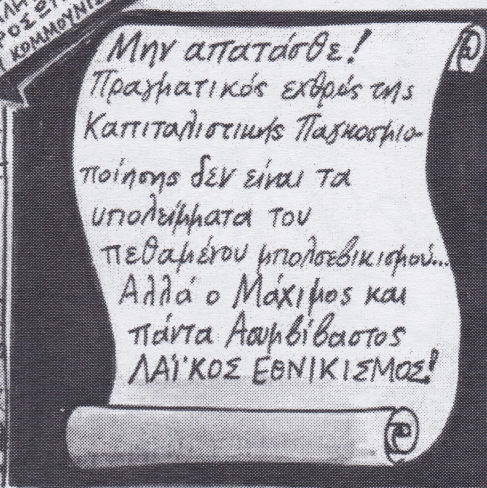 ΚΟΜΜΟΥΝΙΣ
Μην απατάσθε!
Πραγματικός εχθρός της
Καπιταλιστικής Παγκοσμιο-
ποίησης δεν είναι τα
υπολείμματα του
πεθαμένου μπολσεβικισμού...
Αλλά ο Μάχιμος και
πάντα Ασυμβίβαστος
ΛΑΪΚΟΣ ΕΘΝΙΚΙΣΜΟΣ!